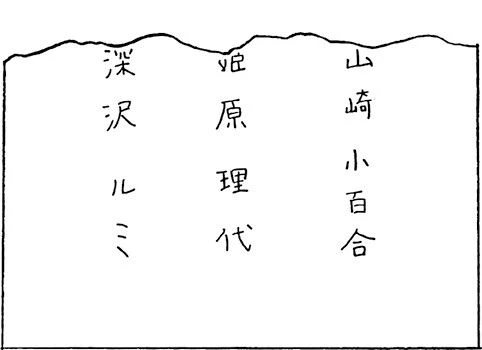 山崎 小百合
姫原 理代
深沢 ルミ